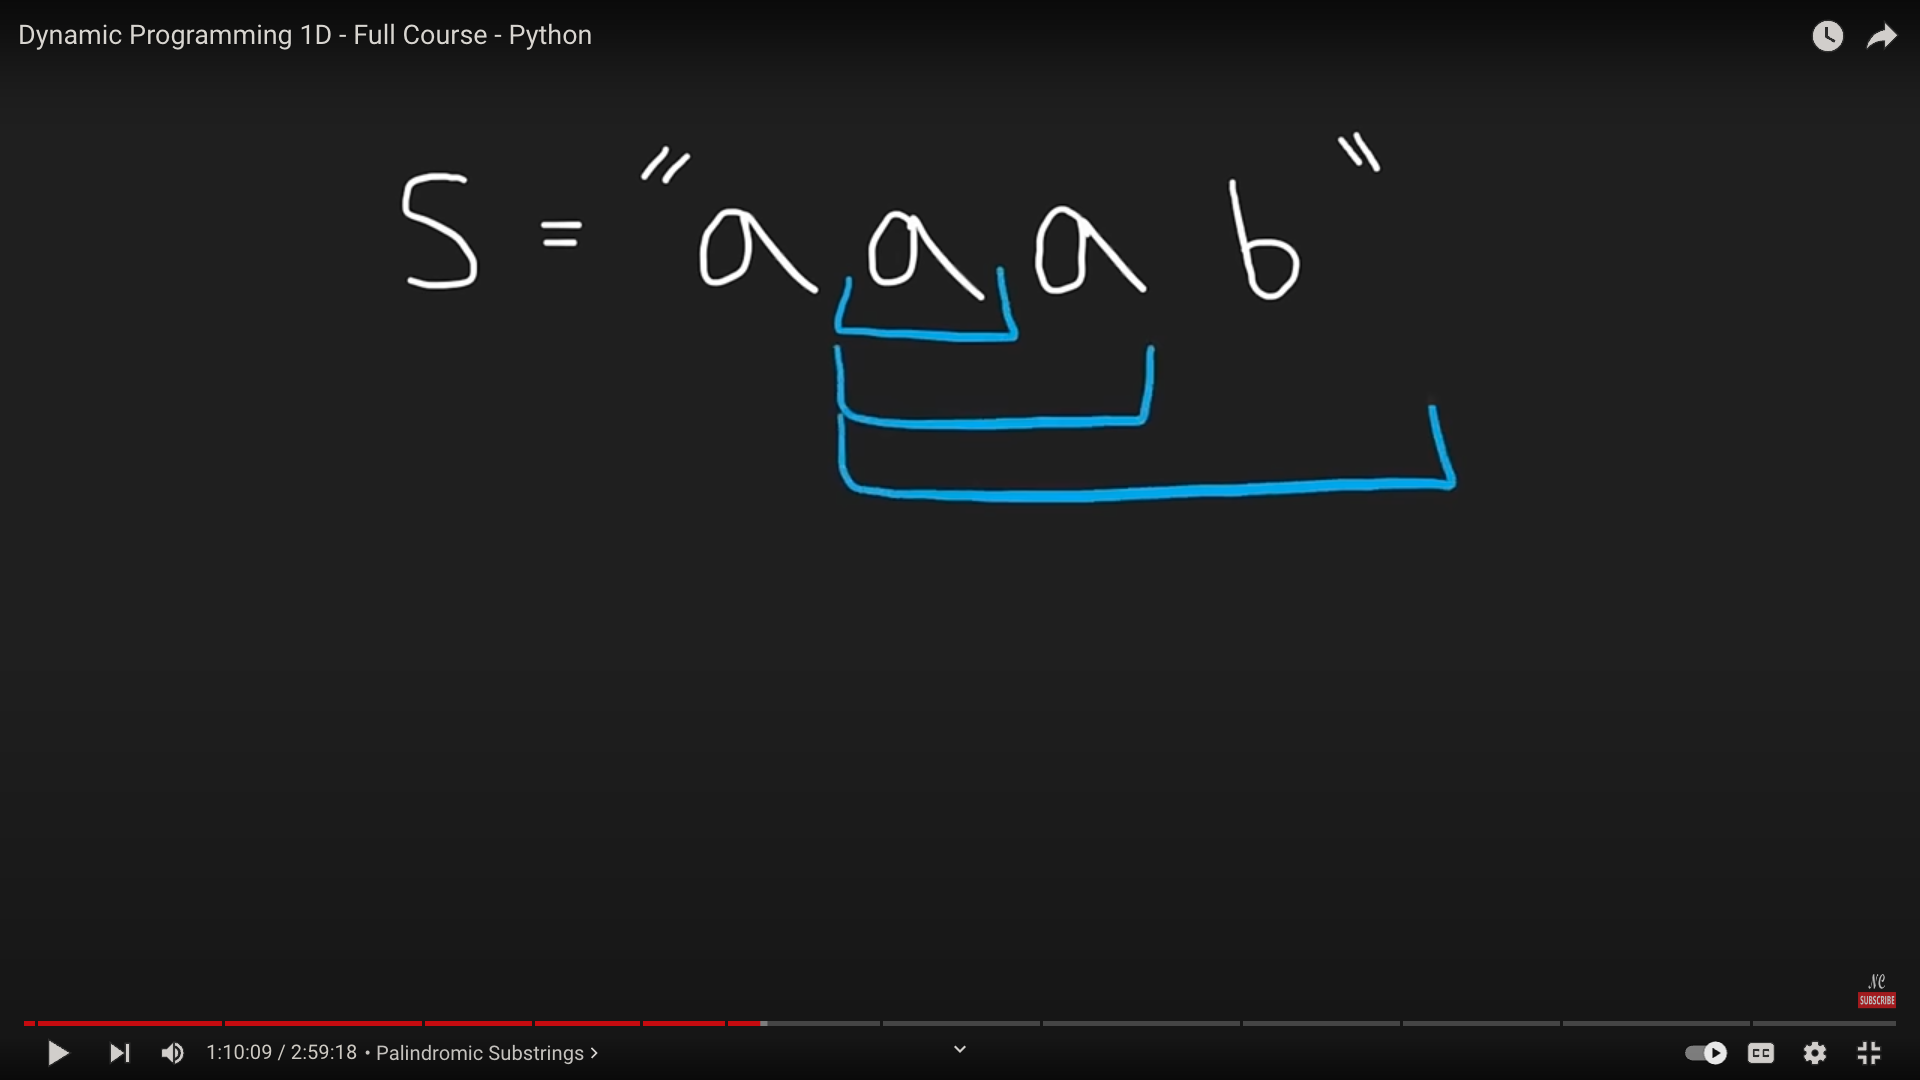 Dynamic Programming 1D - Full Course - Python
S = "a a a b"
NC
SUBSCRIBE
1:10:09 / 2:59:18 • Palindromic Substrings >
CC